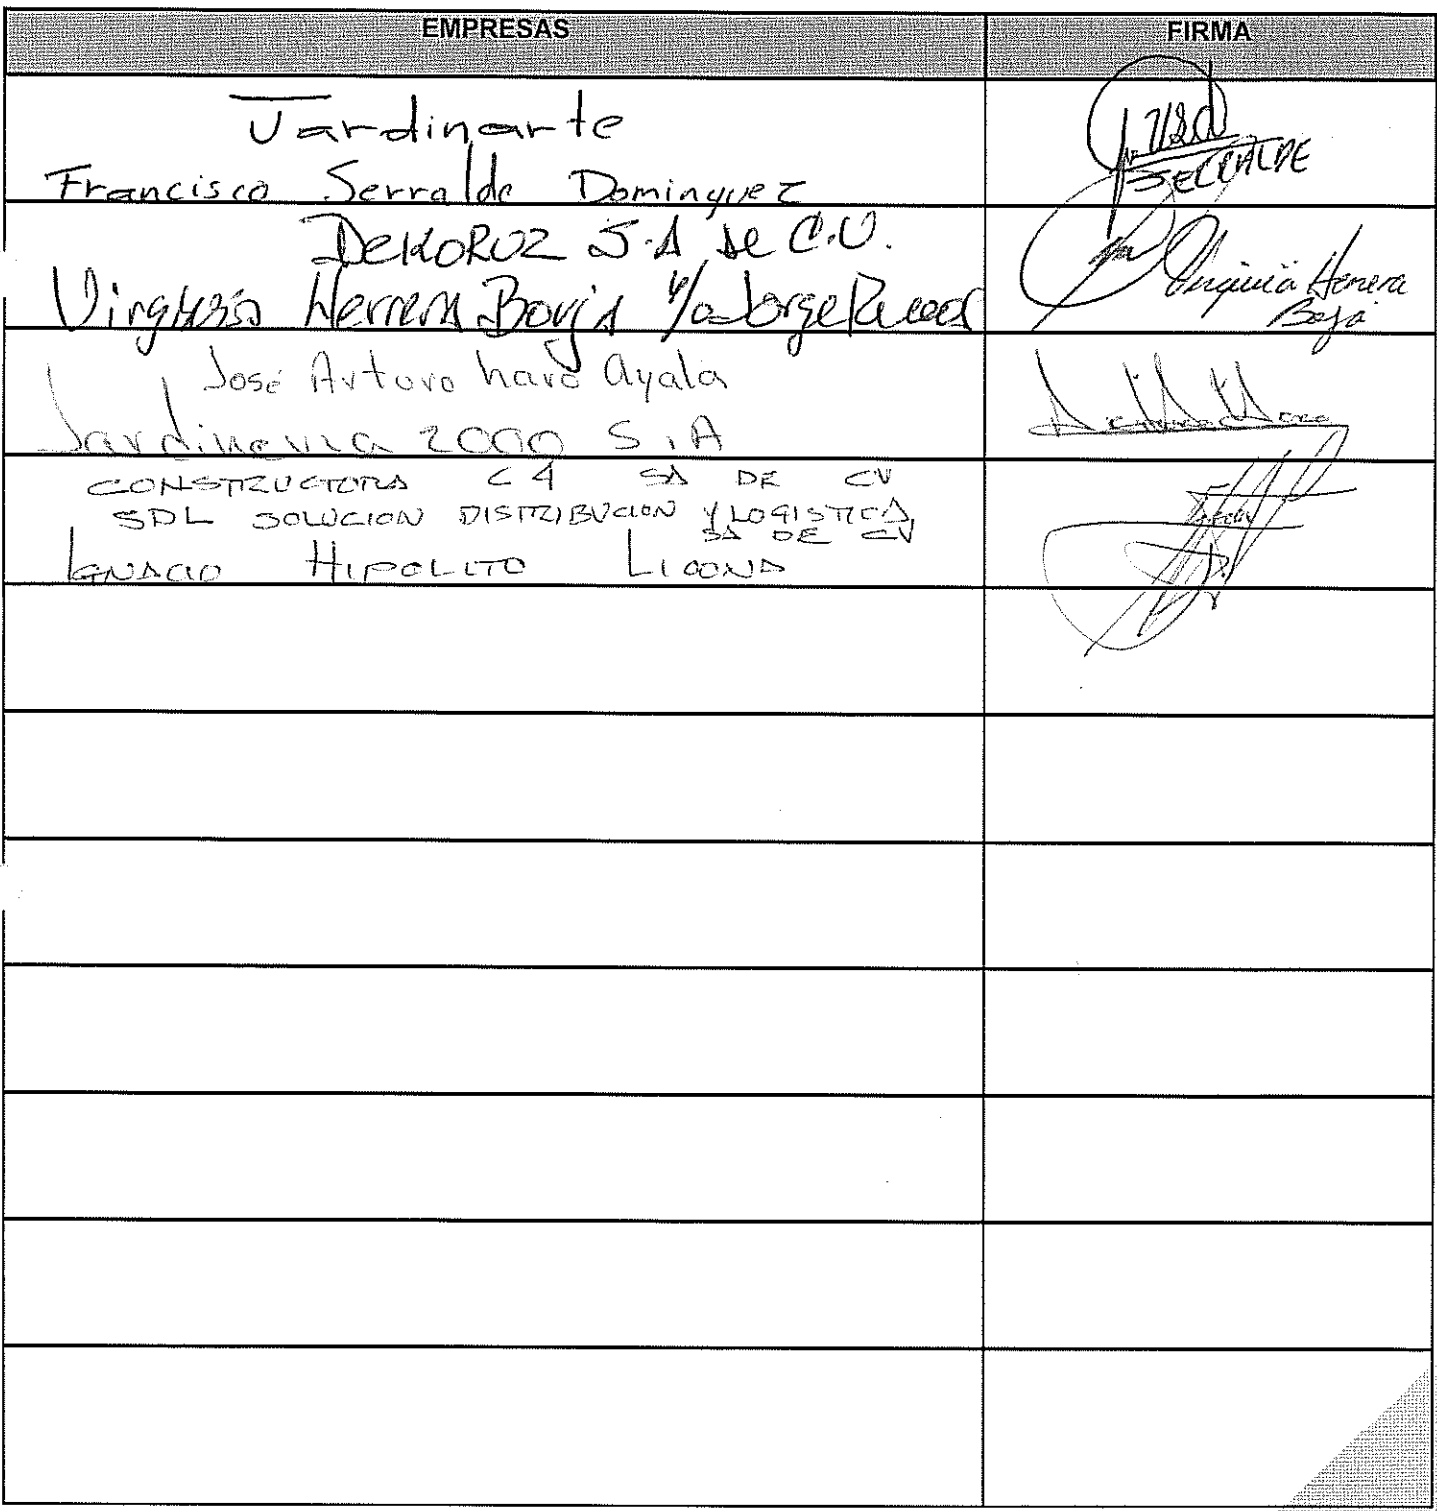 EMPRESAS FIRMA
Jardinarte
Francisco Serralde Dominguez
SERRALDE
DEKORUZ S.A de C.V.
Herrera Borja y/o Jorge
Virginia Herrera
Borja
José Arturo haro Ayala
Jardineria 2000 S.A
CONSTRUCTORA C4 SA DE CV
SDL SOLUCION DISTRIBUCION Y LOGISTICA
SA DE CV
IGNACIO HIPOLITO LICONA